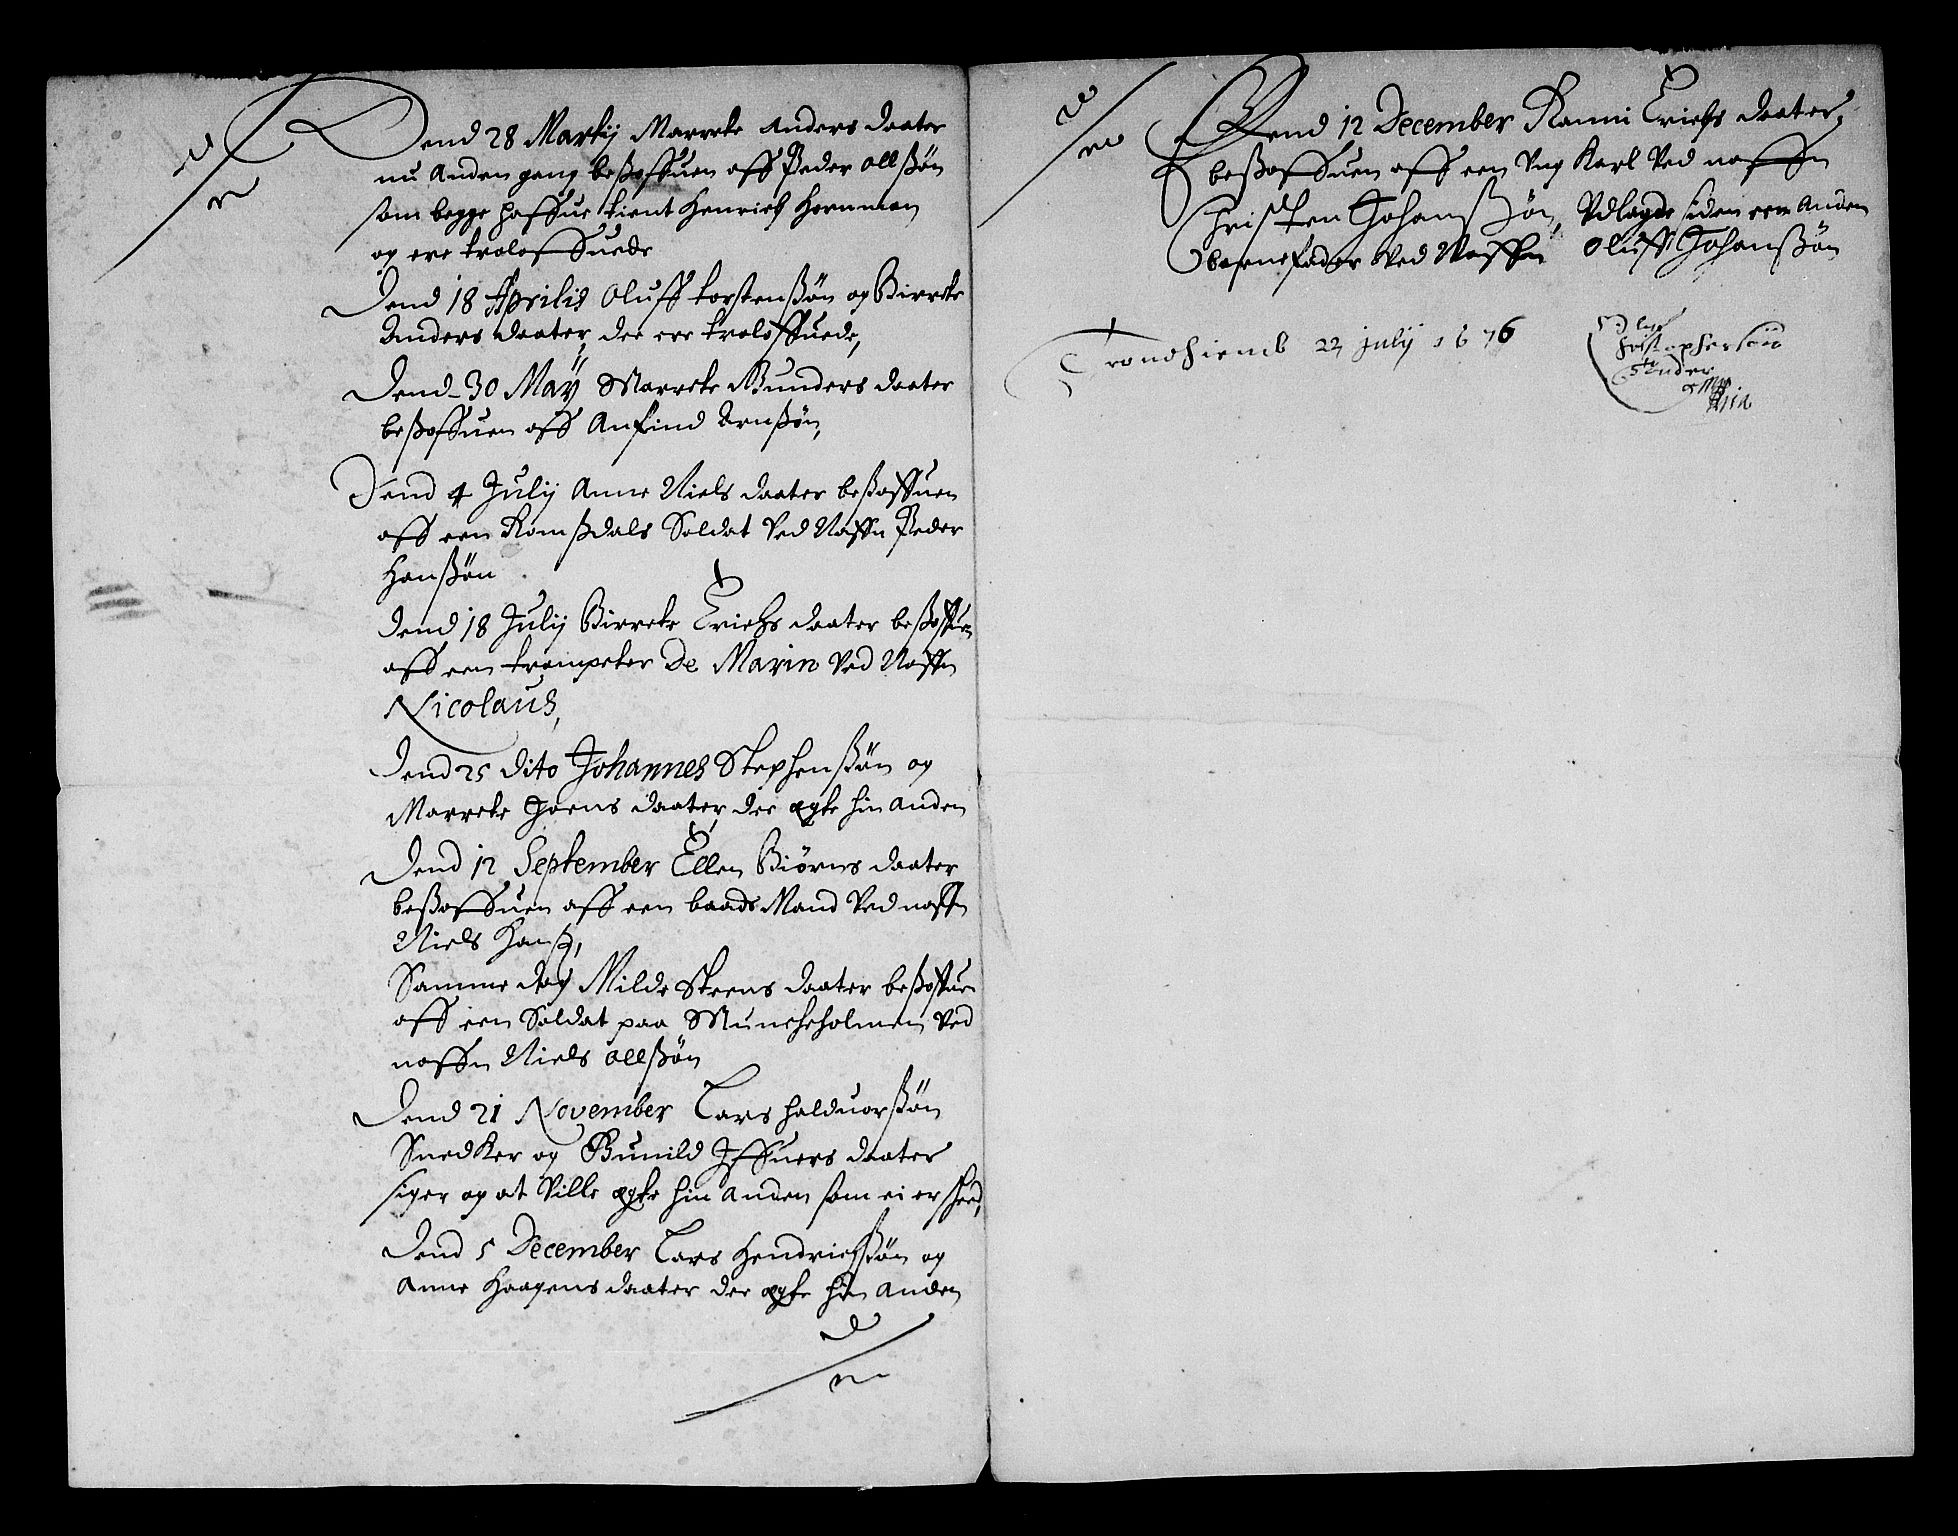 Dend 28 Martij Marrete Anders daater
nu Anden gang beßoffuen aff Peder ollßøn
som begge haffue tient Henrich Hornman
og ere troloffuede
Dend 18 Aprilis Oluff torstenßøn og Birrete
Anders daater, der ere troloffuede,
Dend 30 Maÿ Marrete Gunders daater
beßoffuen aff Anfind Arnßøn,
Dend 4 Julij Anne Niels daater beßoffuen
aff een Romßdals Soldat Ved Naffn Peder
Hanßøn
Dend 18 Julij Birrete Erichs daater beßoffuen
aff een trompeter De Marin Ved Naffn
Nicolaus,
Dend 25 dito Johannes Stephenßøn og
Marrete Joens daater, der egte hin anden
Dend 12 September Ellen Biørns daater
beßoffuen aff een baads Mand Ved naffn
Niels Hanß,
Samme dag Milde Steens daater beßoffuen
aff een Soldat paa Muncheholmen Ved
naffn Niels ollßøn
Dend 21 November Lars halduorßøn
Snedker og Gunild Iffuers daater
siger og at Ville egte hin anden som ei er skeed,
Dend 5 December Lars Hendrichßøn og
Anne Haagens daater der egte hin anden
Dend 12 December Ranni Erichs daater,
beßoffuen aff een Vng Karl Ved naffn
Christen Johanßøn, Vdlagde siden een Anden
barnefader Ved Naffn Oluff Johanßøn
Trondhiemb 22 julij 1676